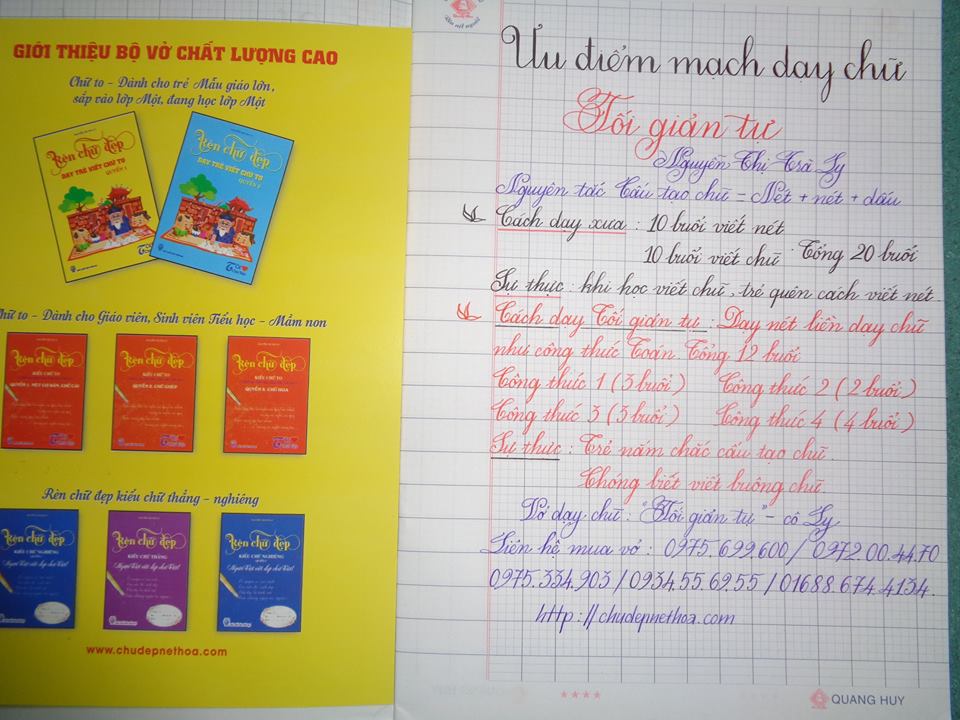 GIỚI THIỆU BỘ VỞ CHẤT LƯỢNG CAO
Chữ to - Dành cho trẻ Mẫu giáo lớn,
sắp vào lớp Một, đang học lớp Một
Rèn chữ đẹp
DẠY TRẺ VIẾT CHỮ TO
QUYỂN 1
Rèn chữ đẹp
DẠY TRẺ VIẾT CHỮ TO
QUYỂN 2
Chữ to - Dành cho Giáo viên, Sinh viên Tiểu học - Mầm non
Rèn chữ đẹp
KIỂU CHỮ TO
QUYỂN 1: NÉT CƠ BẢN, CHỮ CÁI
Rèn chữ đẹp
KIỂU CHỮ TO
QUYỂN 2: CHỮ GHÉP
Rèn chữ đẹp
KIỂU CHỮ TO
QUYỂN 3: CHỮ HOA
Rèn chữ đẹp kiểu chữ thẳng - nghiêng
Rèn chữ đẹp
KIỂU CHỮ NGHIÊNG
Người Việt viết đẹp chữ Việt!
Rèn chữ đẹp
KIỂU CHỮ THẲNG
Người Việt viết đẹp chữ Việt!
Rèn chữ đẹp
KIỂU CHỮ NGHIÊNG
Người Việt viết đẹp chữ Việt!
www.chudepnethoa.com
Ưu điểm mạch dạy chữ
Tối giản tự
Nguyễn Thị Trà Ly
Nguyên tắc Cấu tạo chữ = Nét + nét + dấu
Cách dạy xưa : 10 buổi viết nét
10 buổi viết chữ Tổng 20 buổi
Sự thực : khi học viết chữ, trẻ quên cách viết nét.
Cách dạy Tối giản tự : Dạy nét liền dạy chữ
như công thức Toán. Tổng 12 buổi
Công thức 1 (3 buổi) Công thức 2 (2 buổi)
Công thức 3 (3 buổi) Công thức 4 (4 buổi)
Sự thực : Trẻ nắm chắc cấu tạo chữ.
Chóng biết viết buông chữ.
Vở dạy chữ : "Tối giản tự" - cô Ly
Liên hệ mua vở : 0975.699.600 / 0972.00.44.70
0975.334.903 / 0934.55.69.55 / 01688.674.4134.
http://chudepnethoa.com
QUANG HUY